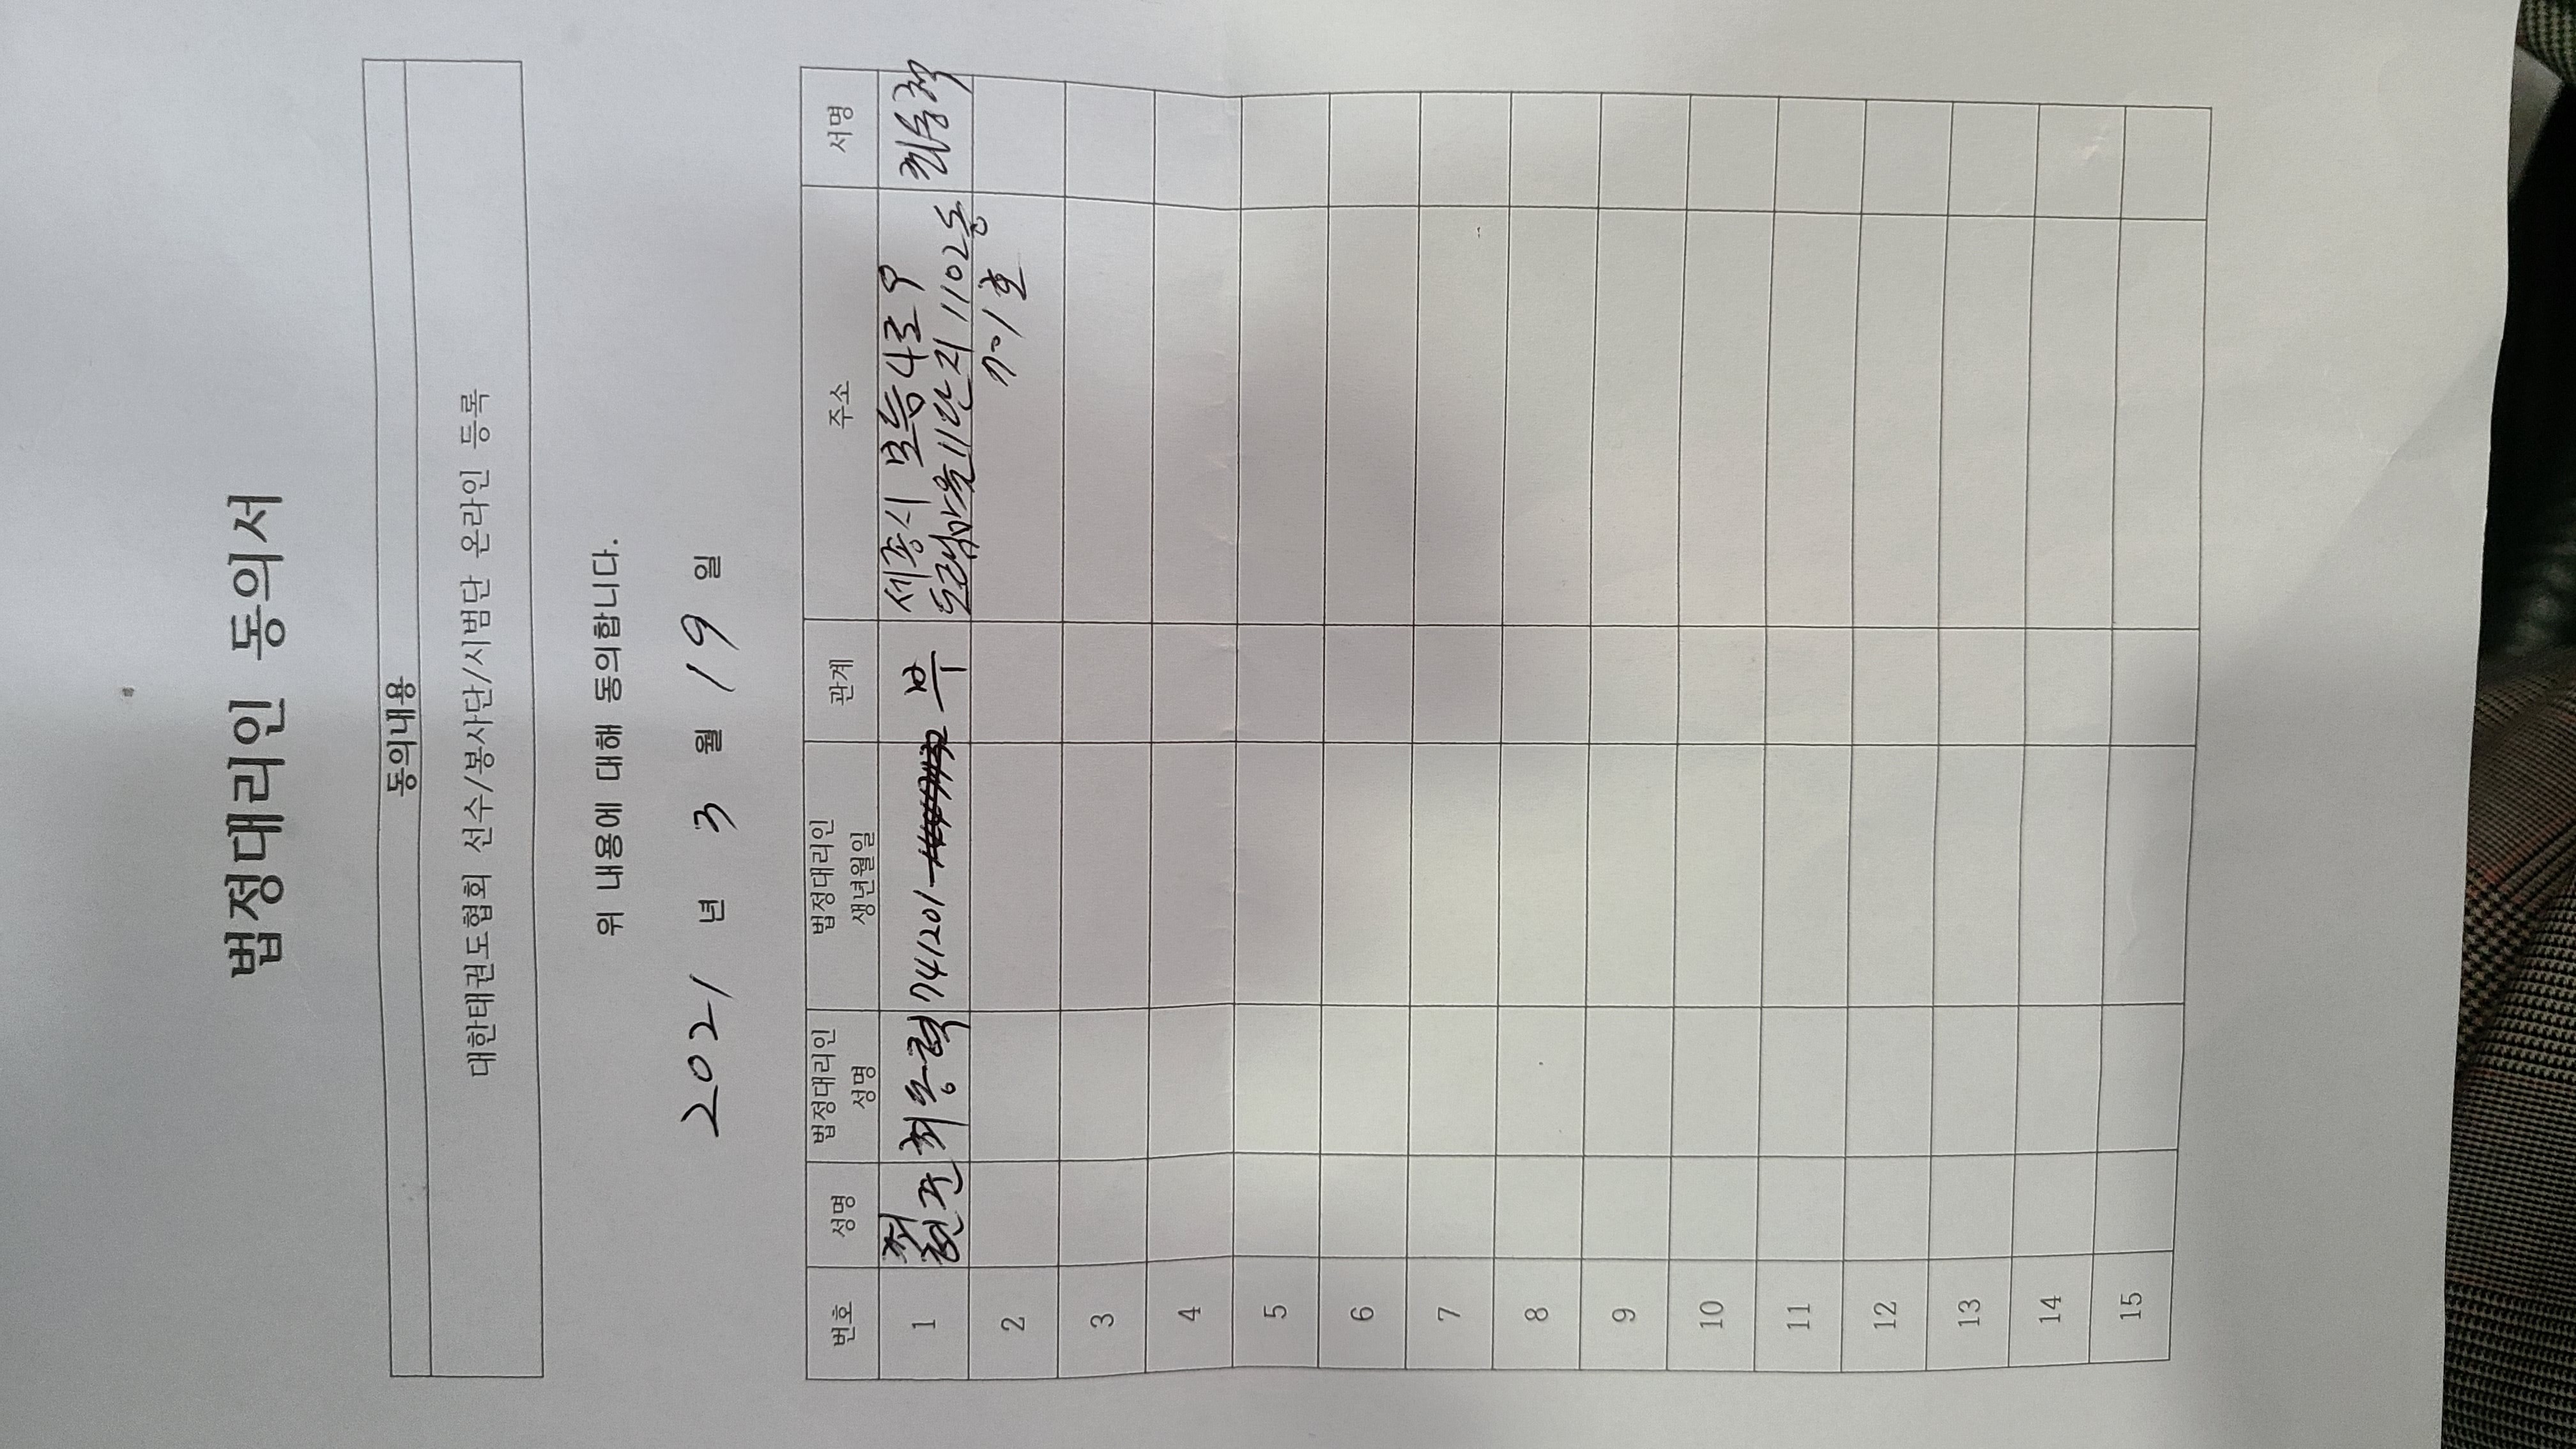 법정대리인 동의서
동의내용
대한태권도협회 선수/봉사단/시범단 온라인 등록
위 내용에 대해 동의합니다.
2021 년 3 월 19 일
번호 성명 법정대리인 성명 법정대리인 생년월일 관계 주소 서명
1 최 741201 부 세종시 보듬4로 9
도램마을11단지 1102동
701호
2
3
4
5
6
7
8
9
10
11
12
13
14
15